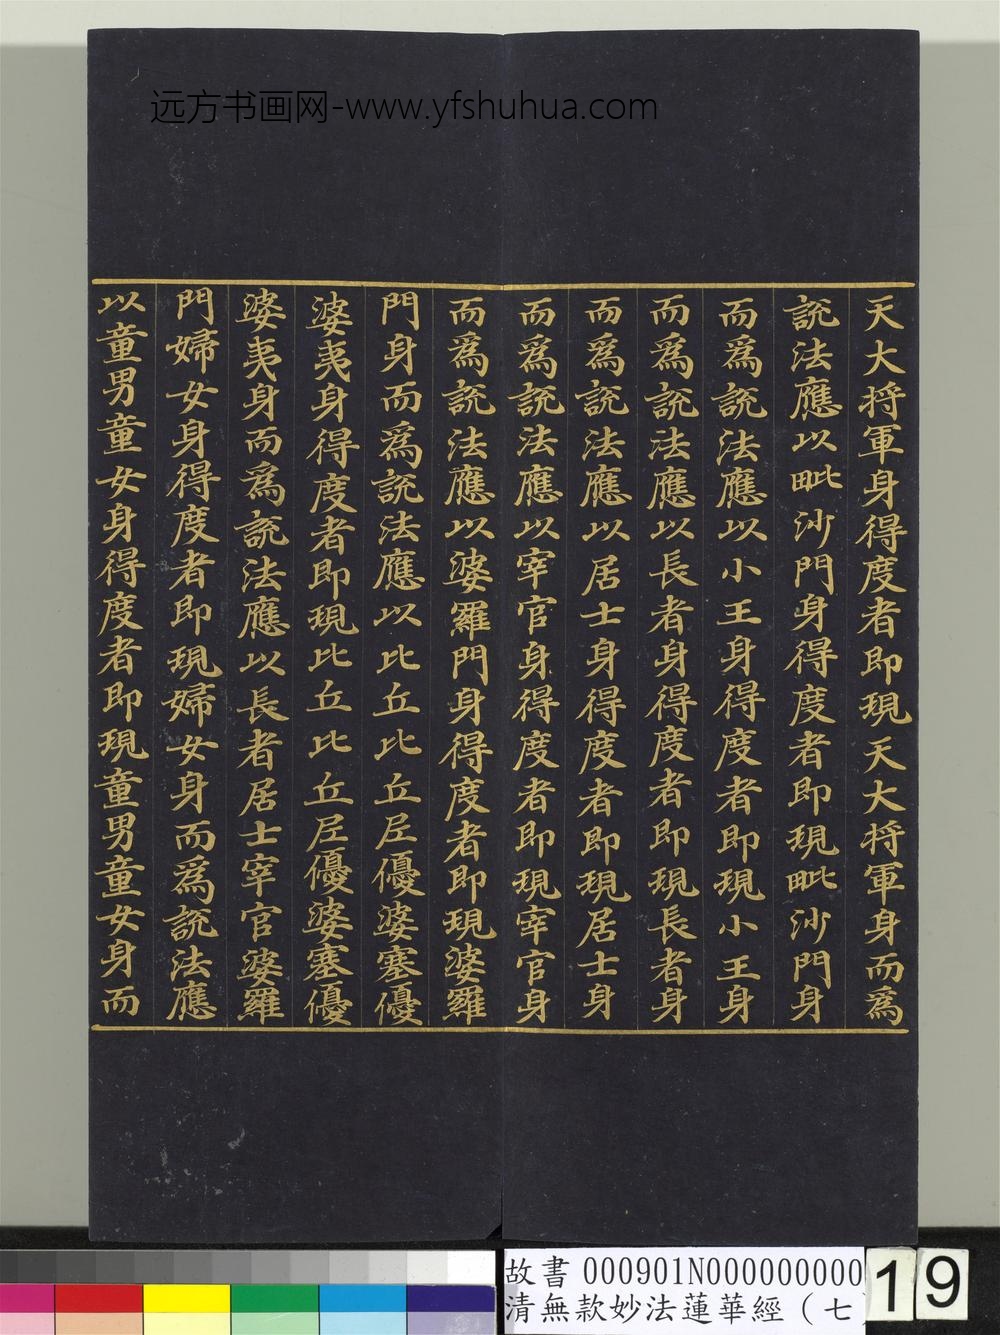 远方书画网-www.yfshuhua.com
天大将軍身得度者即現天大将軍身而爲
説法應以毗沙門身得度者即現毗沙門身
而爲説法應以小王身得度者即現小王身
而爲説法應以長者身得度者即現長者身
而爲説法應以居士身得度者即現居士身
而爲説法應以宰官身得度者即現宰官身
而爲説法應以婆羅門身得度者即現婆羅
門身而爲説法應以比丘比丘尼優婆塞優
婆夷身得度者即現比丘比丘尼優婆塞優
婆夷身而爲説法應以長者居士宰官婆羅
門婦女身得度者即現婦女身而爲説法應
以童男童女身得度者即現童男童女身而
故書 000901N000000000
清無款妙法蓮華經（七
19